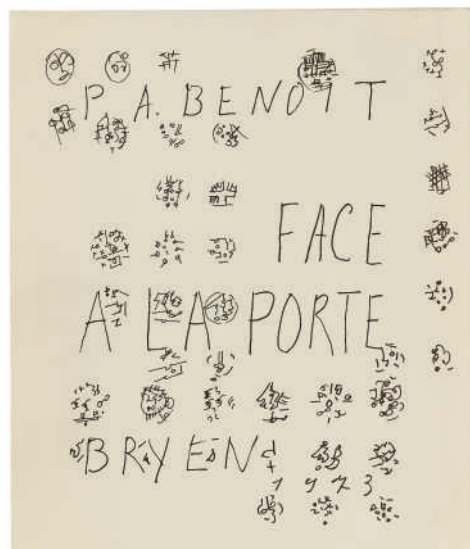 P. A. BENOIT
FACE
A LA PORTE
BRYEN
1973